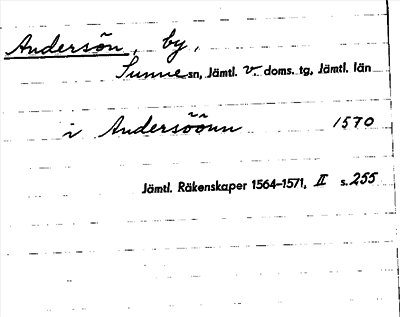 Andersön, by,
Sunne sn, Jämtl. v. doms. tg, Jämtl. län
i Andersöönn 1570
Jämtl. Räkenskaper 1564-1571, II s. 255